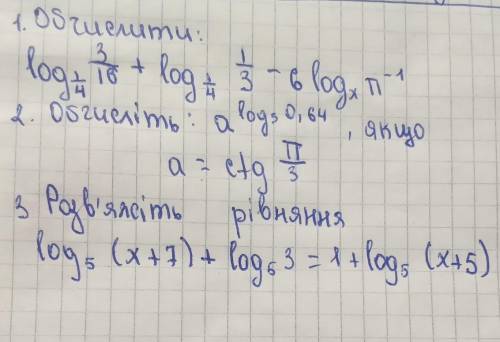 1. Обчислити:
log_{1/4} 3/16 + log_{1/4} 1/3 - 6 log_x π^{-1}
2. Обчисліть: a^{log_3 0,64}, якщо
a = ctg π/3
3 Розв'яжіть рівняння
log_5 (x+7) + log_5 3 = 1 + log_5 (x+5)